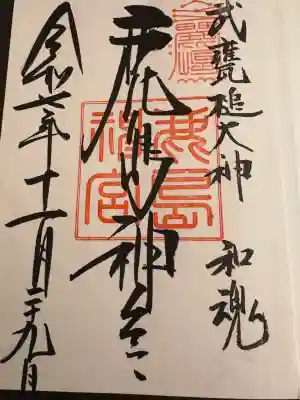 武甕槌大神　和魂
鹿島神宮
鹿島神宮
令和六年十一月二十九日